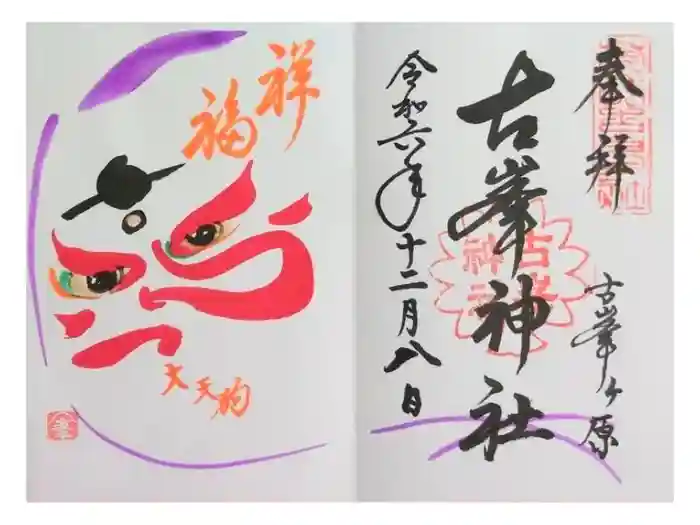 奉拝
古峯ヶ原
古峯神社
令和六年十二月八日
祥
福
大天狗